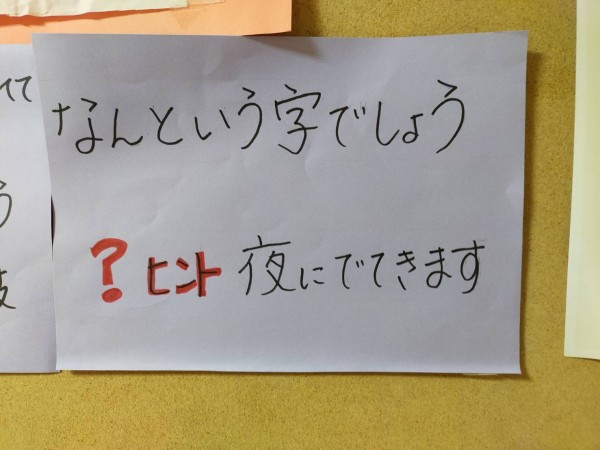 なんという字でしょう
? ヒント 夜にでてきます